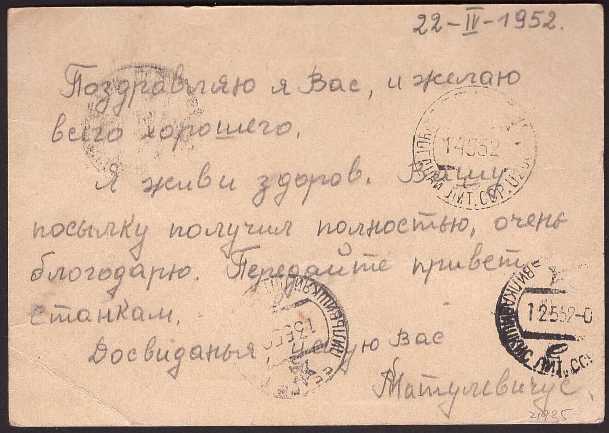 22-IV-1952.
Поздравляю я Вас, и желаю
всего хорошего.
Я живи здоров. Вашу
посылку получил полностью, очень
блогодарю. Передайте привет
станкам.
Досвиданья Вас
Матулевичус.
1 4 5 52
ЛИТ.ССР.
1 2 5 52-0
21935